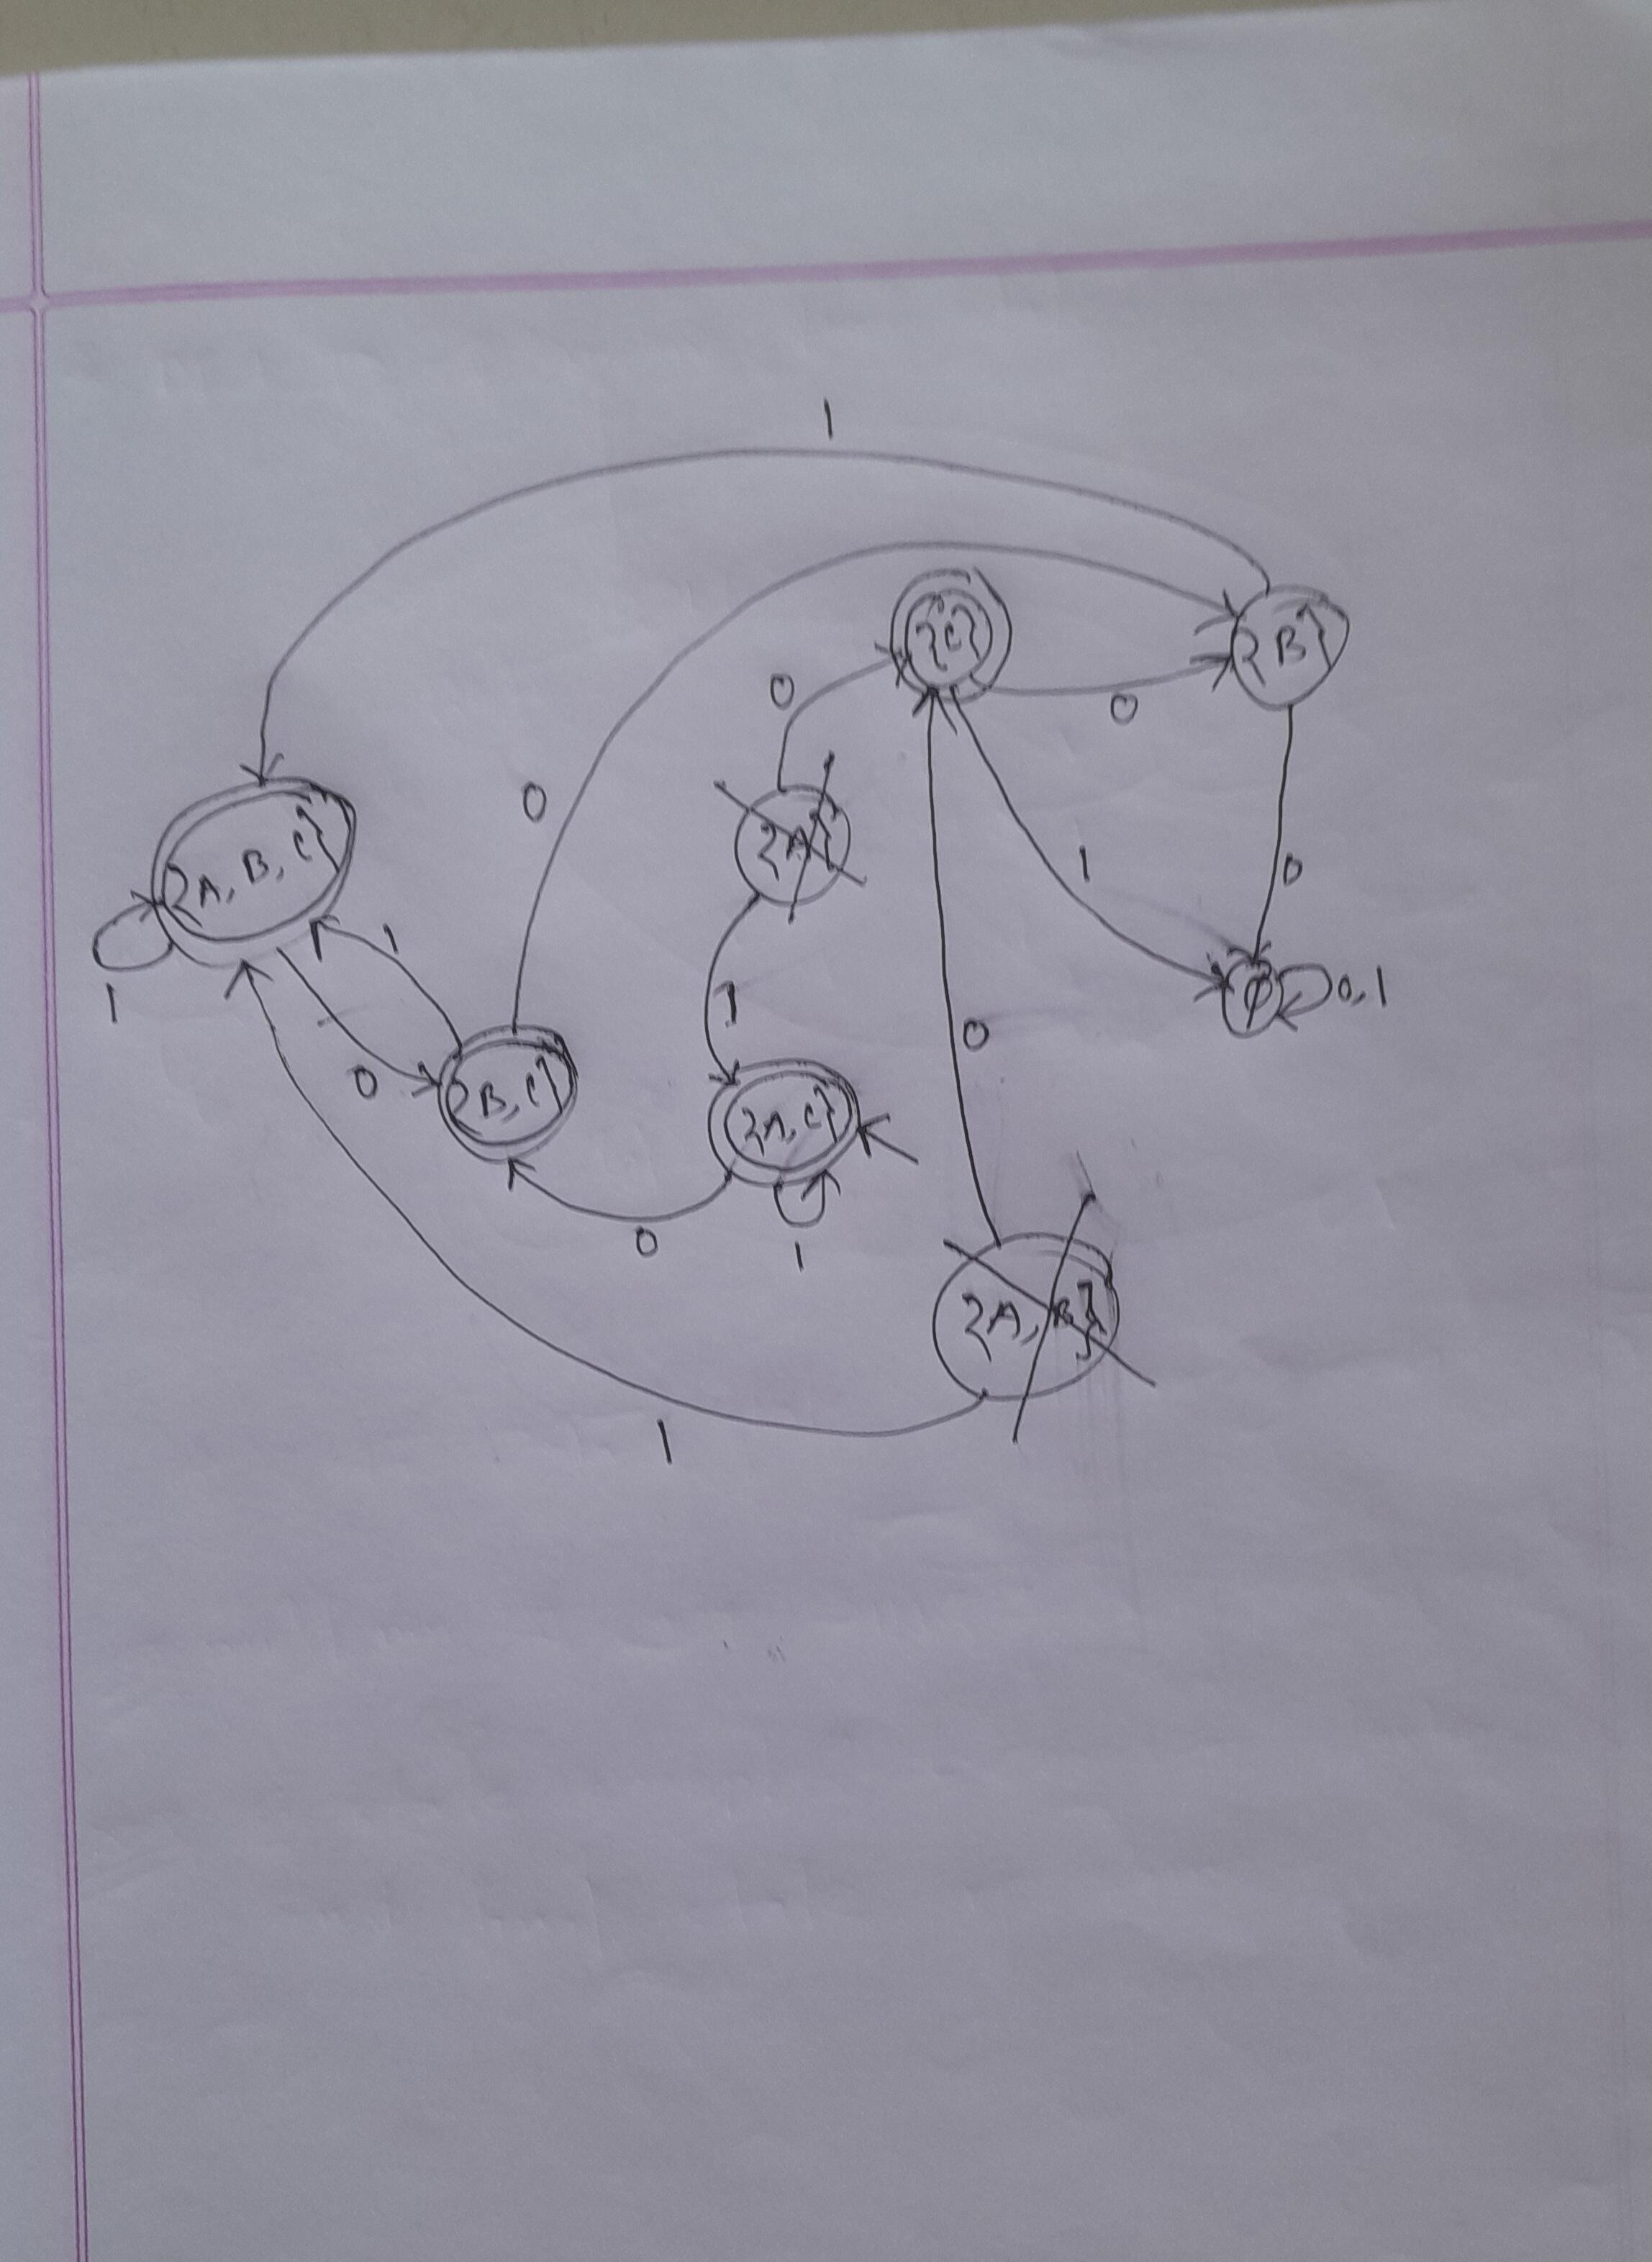 1
{C}
{B}
0
0
0
{A}
{A, B, C}
1
0
1
1
1
0
φ
0,1
0
{B, C}
{A, C}
0
1
{A, B}
1